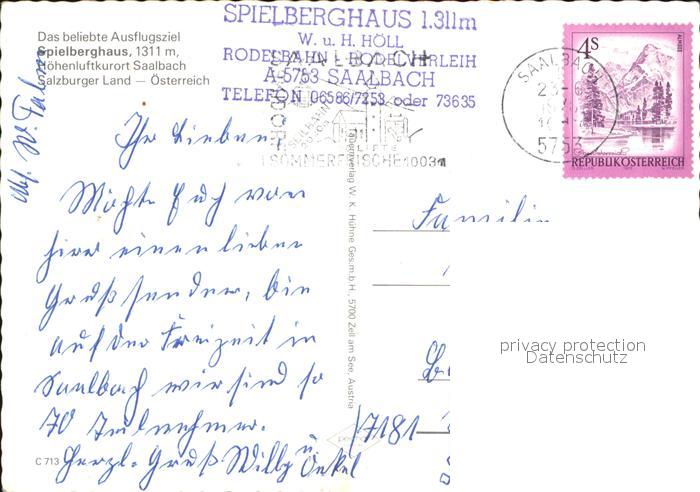 Das beliebte Ausflugsziel
Spielberghaus, 1311 m,
Höhenluftkurort Saalbach
Salzburger Land — Österreich
SPIELBERGHAUS 1.311m
W. u. H. HÖLL
RODELBAHN - RODELVERLEIH
A-5753 SAALBACH
TELEFON 06586/7253 oder 73635
SOMMERFRISCHE 1003m
SAALBACH
5753
4S
ALMSEE
REPUBLIK ÖSTERREICH
Abs. W.
Ihr Lieben,
Möchte Euch von
hier einen lieben
Gruß senden, bin
auf der Freizeit in
Saalbach wir sind so
70 Teilnehmer.
Herzl. Gruß Willy u. Onkel
Alpenverlag W. K. Hühne Ges.m.b.H., 5700 Zell am See, Austria
C 713
Familie
7181
privacy protection
Datenschutz